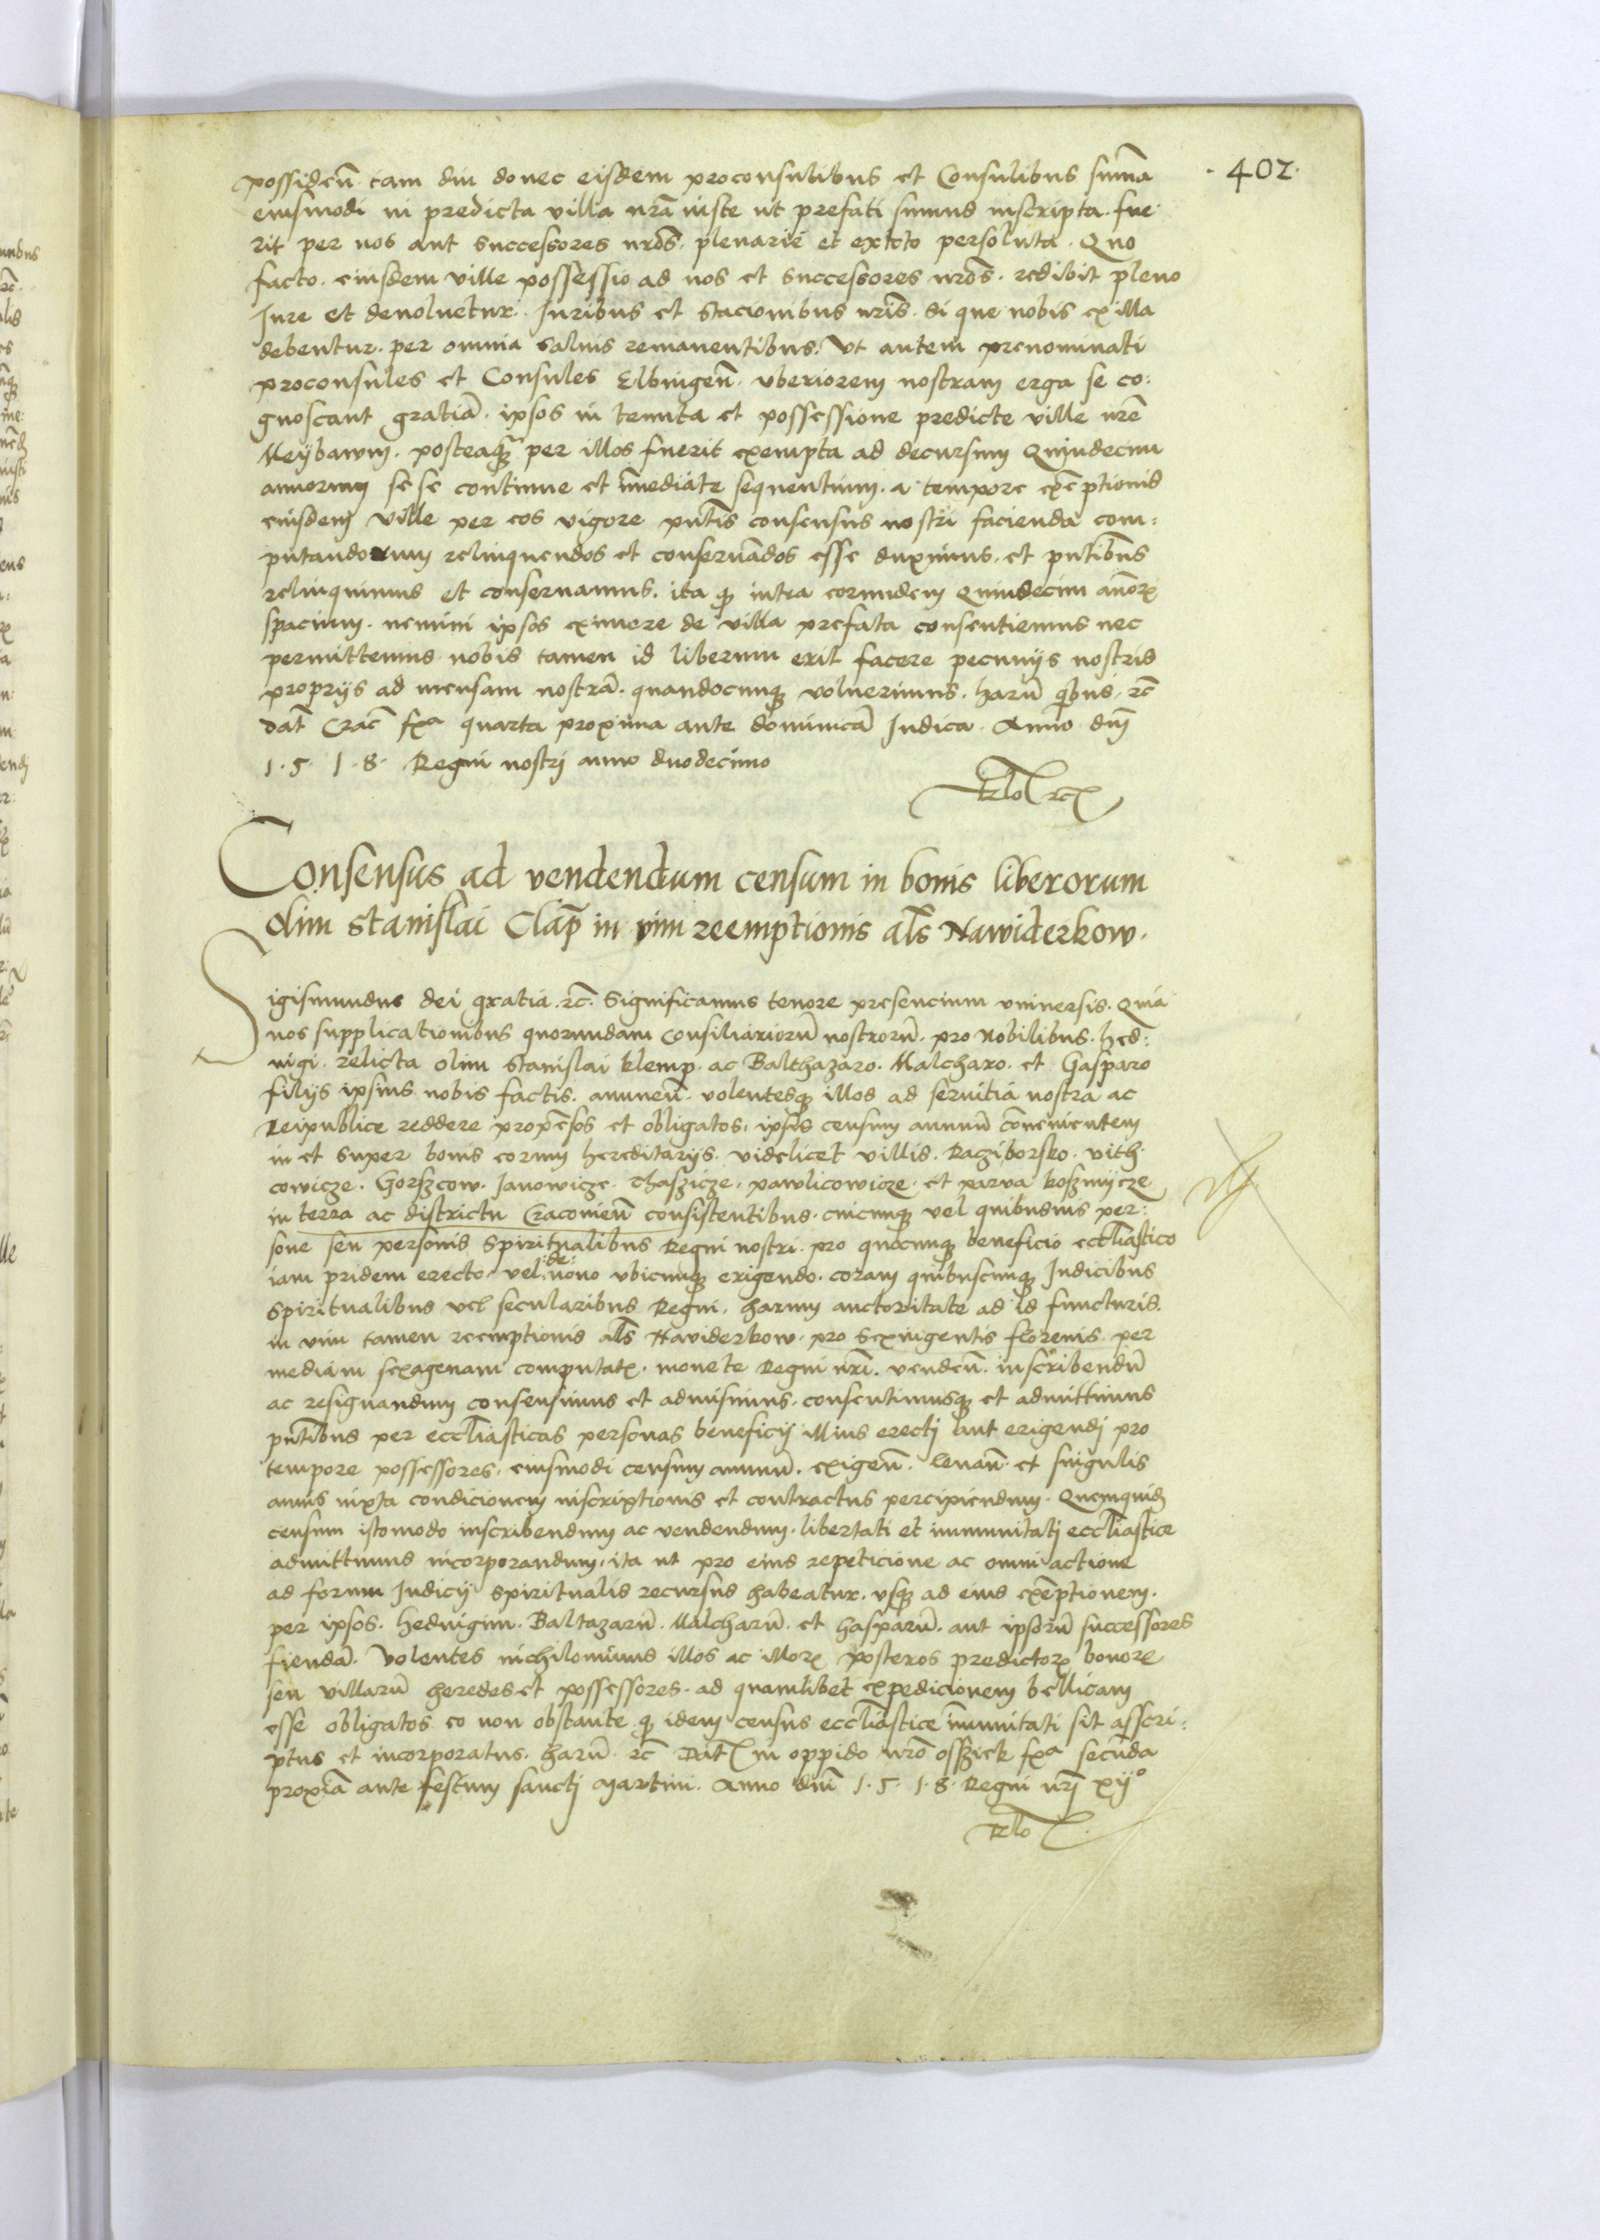 · 402 ·
possideñ tam diu donec eisdem proconsulibus et Consulibus sum̃a
eiusmodi in predicta villa nr̃a iuste ut prefati sumus inscripta fue
rit per nos aut successores nrõs plenarie et extoto persoluta · Quo
facto · eiusdem ville possessio ad nos et successores nrõs · redibit pleno
Iure et devoluetur · Iuribus et stacionibus nrĩs · si que nobis ex illa
debentur · per omnia salvis remanentibus · Ut autem prenominati
proconsules et Consules Elbingeñ · uberiorem nostram erga se co:
gnoscant gratiã · ipsos in tenuta et possessione predicte ville nrẽ
Meÿbawm · posteaq̃ per illos fuerit exempta ad decursum Quindecim
annorum se se continue et im̃ediate sequentium · a tempore exẽptionis
eiusdem ville per eos vigore pñtis consensus nostri facienda com:
putandorum relinquendos et conservãdos esse duximus · et pñtibus
relinquimus et conservamus · ita q intra eorundem Quindecim añorꝝ
spacium · nemini ipsos eximere de villa prefata consentiemus nec
permittemus nobis tamen id liberum erit facere pecunijs nostris
proprijs ad mensam nostrã · quandocunqꝫ voluerimus · harũ qbus · rc̃
dat̃ Crac̃ fxᵃ quarta proxima ante dominicã Iudica · Anno dnĩ
1 · 5 · 1 · 8 · Regni nostrj anno duodecimo
Consensus ad vendendum censum in bonis liberorum
olim Stanislai Clap̃ in vim reemptionis al̃s Nawiderkow ·
Sigismundus dei gratia rc̃ · Significamus tenore presencium universis · Quia
nos supplicationibus quorundam Consiliariorũ nostrorũ · pro Nobilibus · hed:
vigi · relicta olim Stanislai klemp · ac Balthazaro · Malcharo · et Gasparo
filijs ipsius nobis factis · annueñ · volentesqꝫ illos ad servitia nostra ac
Reipublice reddere propẽsos et obligatos · ipsis censum annuũ cõvenientem
in et super bonis eorum hereditarijs · videlicet villis · Raciborsko · vith
cowicze · Gorszcow · Janowicze · Thaszicze · pawlicowicze · et parva koszmÿcze
in terra ac districtu Cracovieñ consistentibus · cuicunqꝫ vel quibusuis per:
sone seu personis spiritualibus Regni nostri · pro quocunqꝫ beneficio eccliastico
iam pridem erecto · vel de novo ubicunqꝫ erigendo · coram quibuscunqꝫ Iudicibus
spiritualibus vel secularibus Regni · harum auctoritate ad id functuris ·
in vim tamen reemptionis al̃s Naviderkow · pro Sexingentis florenis per
mediam sexagenam computatꝫ · monete Regni nrĩ · vendeñ · inscribendũ
ac resignandum consensimus et admisimus · consentimusqꝫ et admittimus
pñtibus per eccliasticas personas beneficij illius erectj aut erigendj pro
tempore possessores · eiusmodi censum annuũ · exigeñ · levañ · et singulis
annis iuxta condicionem inscriptionis et contractus percipiendum · Quemquidẽ
censum istomodo inscribendum ac vendendum · libertati et immunitatj eccliastice
admittimus incorporandum · ita ut pro eius repeticione ac omni actione
ad forum Iudicij spiritualis recursus habeatur · usqꝫ ad eius exẽptionem ·
per ipsos · hedvigim · Baltazarũ · Malcharũ · et hasparũ · aut ipsorũ successores
fiendã · Volentes nichilominus illos ac illorꝝ posteros predictorꝝ bonorꝝ
seu villarũ heredes et possessores · ad quamlibet expedicionem bellicam
esse obligatos eo non obstante q idem census eccliastice im̃unitati sit asscri:
ptus et incorporatus · harũ · rc̃ Dat̃ in oppido nrõ ossziek fxᵃ secũda
proxĩa ante festum sanctj Martini · Anno dnĩ 1 · 5 · 1 · 8 · Regni nrj̃ xijº